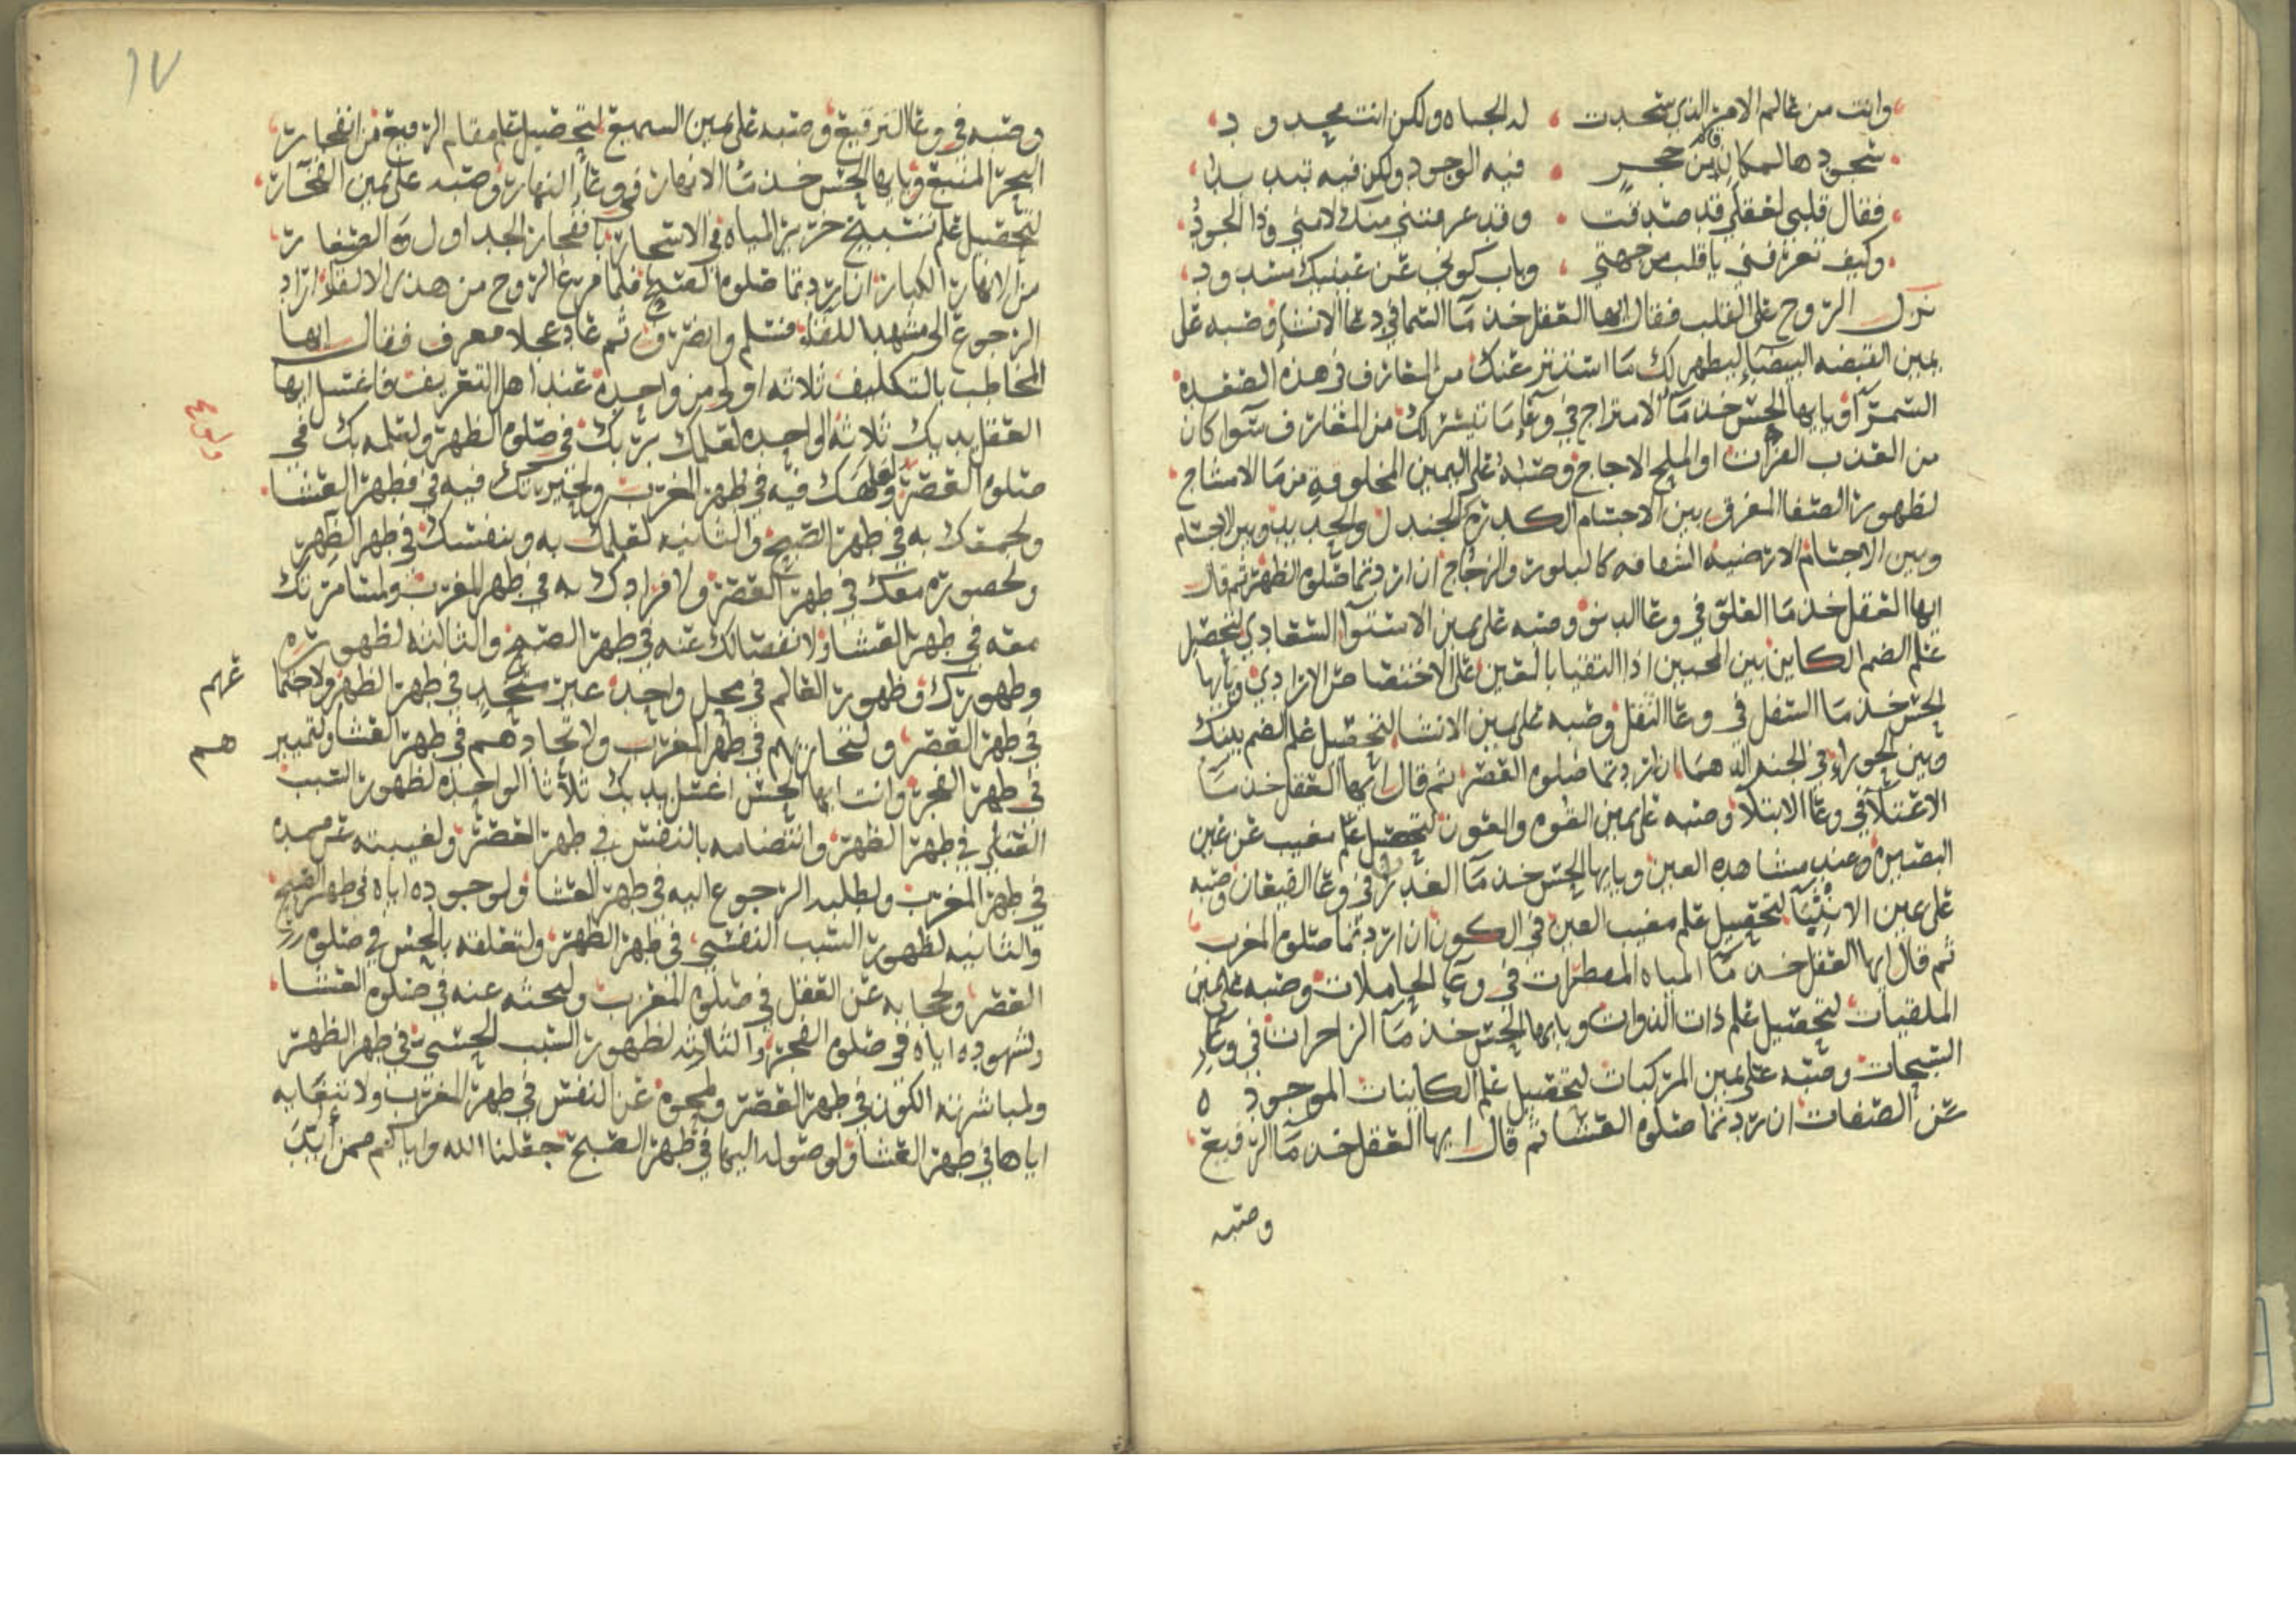 وانت من عالم الامر الذي سجدت له الجباه ولكن انت محدود
سجودها لمكان من حجر فيه الوجود ولكن فيه تبديد
فقال قلبي لعقلي قد صدقت وقد عرفتني منك لا مني وذا الجود
وكيف تعرفني يا قلب من جهتي وباب كوني عن عينيك مسدود
نزل الروح على القلب فقال ايها العقل خذ ما السما في وعا الانشا وصبه على
يمين القبضه البيضا ليطهر لك ما استتر عنك من المعارف في هذه الصعده
السمرآ ويايها الحس خذ ما الامتزاج في وعا ما تيسر لك من المعارف سوا كان
من العذب الفرات او الملح الاجاج وصبه على اليمين المخلوقة من ما الامشاج
لظهور الصفا المفرق بين الاجسام الكدره كالجندل والحديد وبين الاجسام
وبين الاجسام الارضيه الشفافه كالبلور والزجاج ان اردتما صلوه الظهر ثم قال
ايها العقل خذ ما العلق في وعا الدنو وصبه على يمين الاستوا الشعادي لتحصيل
علم الضم الكاين بين المحبين اذا التقيا بالمعين على الاختصاص الارادي ويايها
الحس خذ ما السفل في وعا الثقل وصبه على يمين الانشا لتحصيل علم الضم بينك
وبين الحوراء في الجنه الدهما ان اردتما صلوه العصر ثم قال ايها العقل خذ ما
الاعتلآ في وعا الابتلآ وصبه على يمين القوه والعون لتحصيل علم مغيب عن عين
البصيره عند مشاهده العين ويايها الحس خذ ما الغدير في وعا القيعان وصبه
على يمين الانثيا لتحصيل علم مغيب العين في الكون ان اردتما صلوه المغرب
ثم قال ايها العقل خذ ما المياه المعطرات في وعا الحاملات وصبه على يمين
الملقيات لتحصيل علم ذات الذوات ويايها الحس خذ ما الزاخرات في وعا
السبحات وصبه على يمين المركبات لتحصيل علم الكاينات الموجوده
عن الصفات ان اردتما صلوه العشا ثم قال ايها العقل خذ ما الرفيع
وصبه
١٧
وصبه في وعا الترقيع وصبه على يمين السميع لتحصيل علم مقام الرفيع من انفجار
البحر المنيع ويايها الحس خذ ما الانهار في وعا النهار وصبه على يمين الفخار
لتحصيل علم تسبيح خرير المياه في الاسحار بانفجار الجداول الصغار
من الانهار الكبار ان اردتما صلوه الصبح فلما فرغ الروح من هذه الالقا اراد
الرجوع الى مشهد اللقا فسلم وانصرف ثم عاد عجلا معرف فقال ايها
المخاطب بالتكليف ثلاثه اولى من واحده عند اهل التعريف فاغسل ايها
العقل يديك ثلاثا الواحده لعلمك بربك في صلوه الظهر ولعلمه بك في
صلوه العصر فيه في طهر المغرب ولحيرتك فيه في طهر العشا
ولجمعك به في طهر الصبح والثانيه لعلمك به وبنفسك في طهر الظهر
ولحضوره معك في طهر العصر ولافرادك به في طهر المغرب ولمسامرتك
معه في طهر العشا ولانفصالك عنه في طهر الصبح والثالثه لظهوره
وظهورك وظهور العالم في محل واحد عين متحد في طهر الظهر
في طهر العصر في طهر المغرب ولاتحادهم في طهر العشا ولتميز
في طهر الفجر وانت ايها الحس اغسل يديك ثلاثا الواحده لظهور السبب
العقلي في طهر الظهر بالنفس في طهر العصر ولغيبته عن
في طهر المغرب ولطلبه الرجوع اليه في طهر العشا ولوجوده اياه في طهر الصبح
والثانيه لظهور السبب النفسي في طهر الظهر ولتعلقه بالحس في صلوه
العصر ولحجابه عن العقل في صلوه المغرب ولبحثه عنه في صلوه العشا
ولشهوده اياه في صلوه الفجر والثالثه لظهور السبب الحسي في طهر الظهر
ولمباشرته الكون في طهر العصر ولمحوه عن النفس في طهر المغرب
اياها في طهر العشا ولوصوله اليها في طهر الصبح جعلنا الله واياكم ممن
عرهم
هم